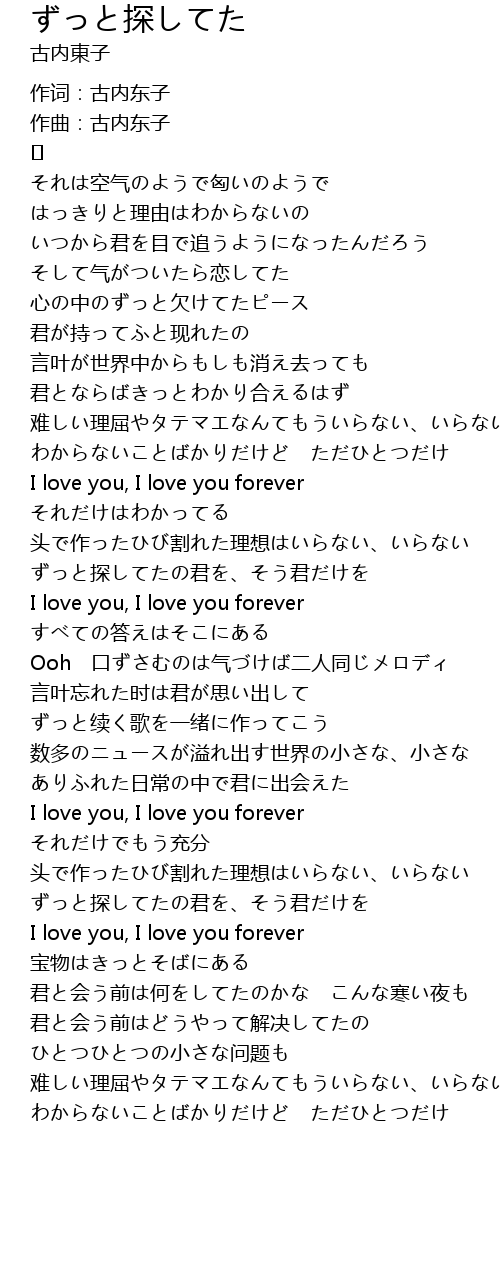 ずっと探してた
古内東子
作词：古内东子
作曲：古内东子
[]
それは空气のようで匈いのようで
はっきりと理由はわからないの
いつから君を目で追うようになったんだろう
そして气がついたら恋してた
心の中のずっと欠けてたピース
君が持ってふと现れたの
言叶が世界中からもしも消え去っても
君とならばきっとわかり合えるはず
难しい理屈やタテマエなんてもういらない、いらない
わからないことばかりだけど　ただひとつだけ
I love you, I love you forever
それだけはわかってる
头で作ったひび割れた理想はいらない、いらない
ずっと探してたの君を、そう君だけを
I love you, I love you forever
すべての答えはそこにある
Ooh　口ずさむのは气づけば二人同じメロディ
言叶忘れた时は君が思い出して
ずっと续く歌を一绪に作ってこう
数多のニュースが溢れ出す世界の小さな、小さな
ありふれた日常の中で君に出会えた
I love you, I love you forever
それだけでもう充分
头で作ったひび割れた理想はいらない、いらない
ずっと探してたの君を、そう君だけを
I love you, I love you forever
宝物はきっとそばにある
君と会う前は何をしてたのかな　こんな寒い夜も
君と会う前はどうやって解决してたの
ひとつひとつの小さな问题も
难しい理屈やタテマエなんてもういらない、いらない
わからないことばかりだけど　ただひとつだけ